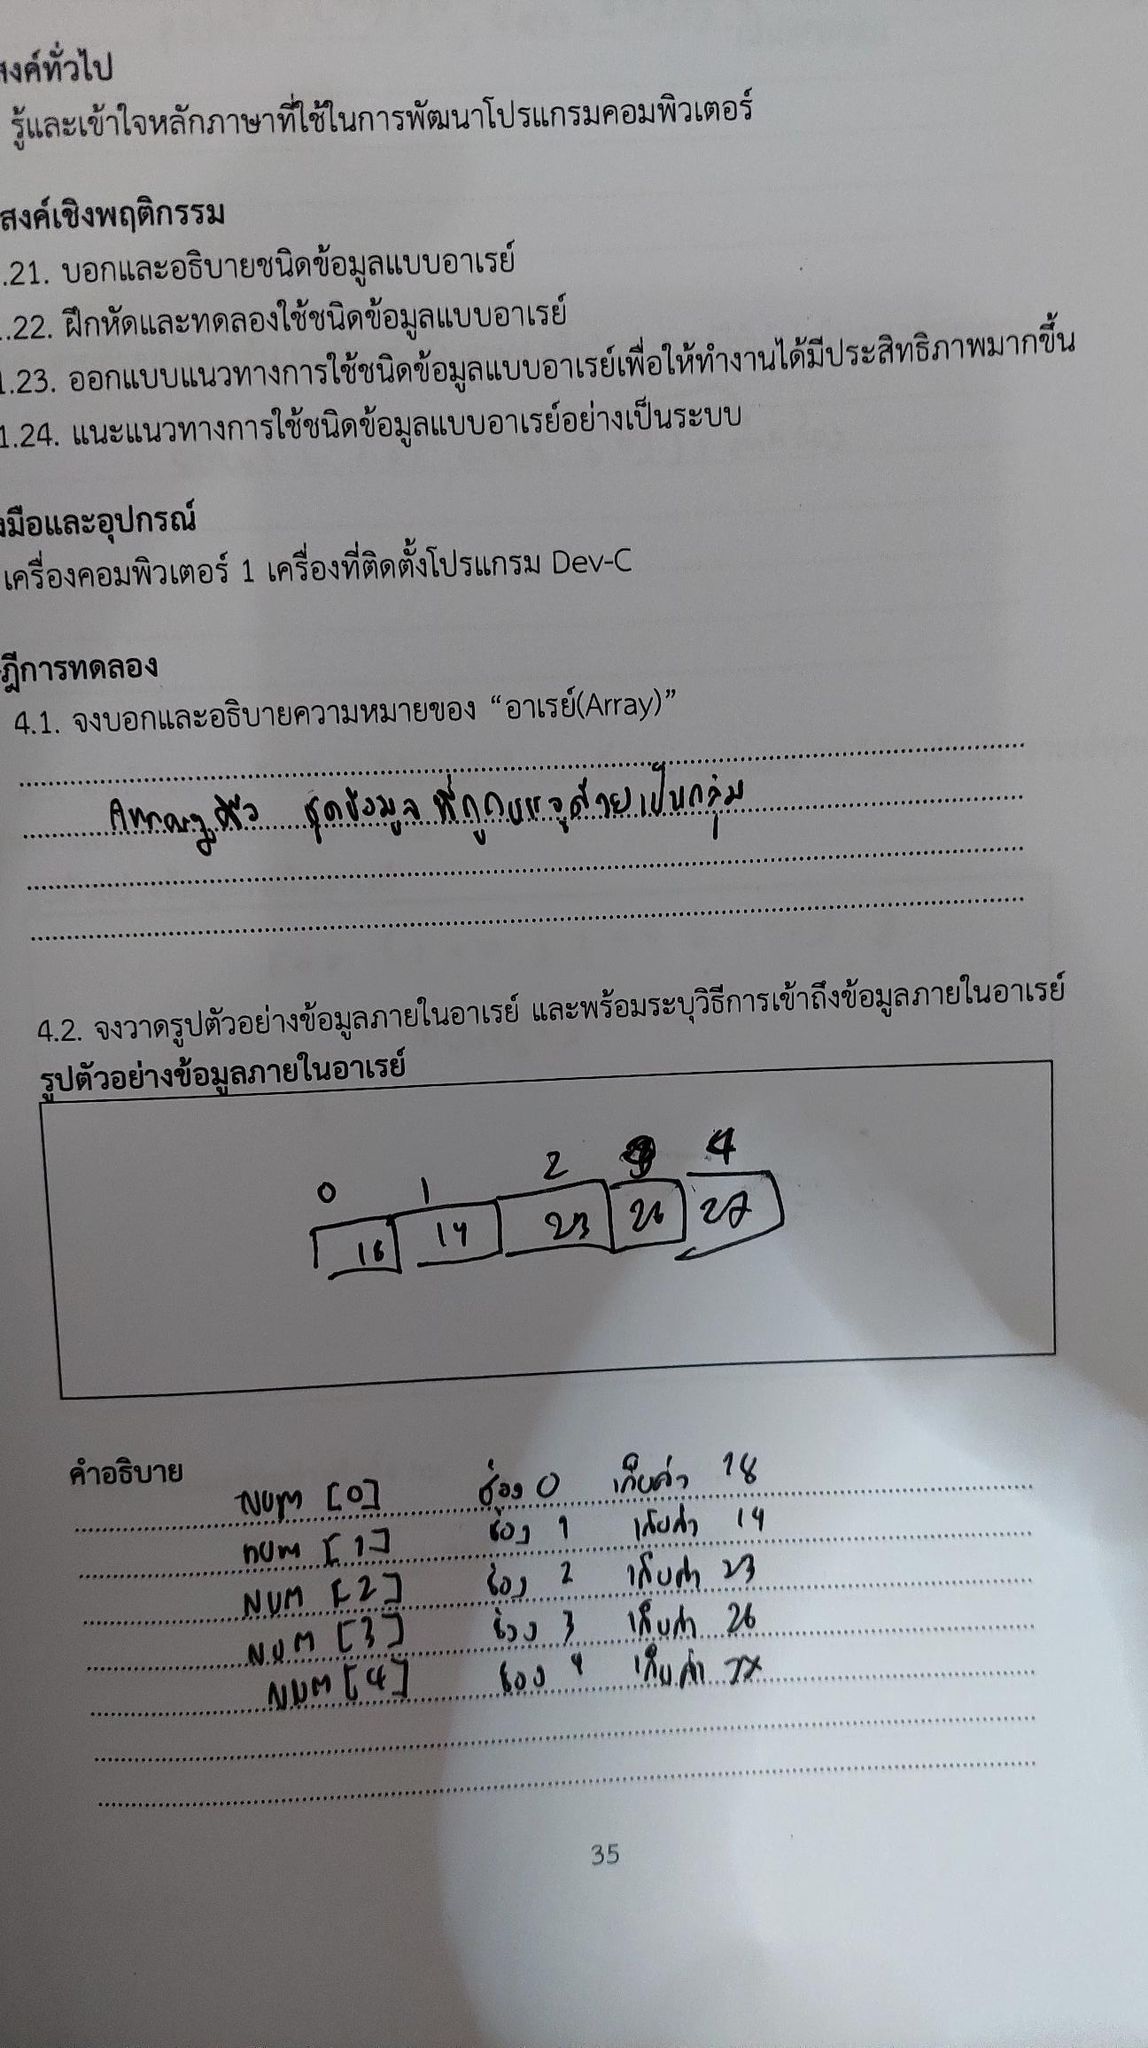 สงค์ทั่วไป
รู้และเข้าใจหลักภาษาที่ใช้ในการพัฒนาโปรแกรมคอมพิวเตอร์
สงค์เชิงพฤติกรรม
.21. บอกและอธิบายชนิดข้อมูลแบบอาเรย์
.22. ฝึกหัดและทดลองใช้ชนิดข้อมูลแบบอาเรย์
1.23. ออกแบบแนวทางการใช้ชนิดข้อมูลแบบอาเรย์เพื่อให้ทำงานได้มีประสิทธิภาพมากขึ้น
1.24. แนะแนวทางการใช้ชนิดข้อมูลแบบอาเรย์อย่างเป็นระบบ
งมือและอุปกรณ์
เครื่องคอมพิวเตอร์ 1 เครื่องที่ติดตั้งโปรแกรม Dev-C
ฎีการทดลอง
4.1. จงบอกและอธิบายความหมายของ “อาเรย์(Array)”
Array คือ ชุดข้อมูล ที่ถูกบรรจุด้วยเป็นกลุ่ม
4.2. จงวาดรูปตัวอย่างข้อมูลภายในอาเรย์ และพร้อมระบุวิธีการเข้าถึงข้อมูลภายในอาเรย์
รูปตัวอย่างข้อมูลภายในอาเรย์
0 1 2 3 4
18 14 23 26 27
คำอธิบาย
Num [0] ช่อง 0 เก็บค่า 18
num [1] ช่อง 1 เก็บค่า 14
NUM [2] ช่อง 2 เก็บค่า 23
NUM [3] ช่อง 3 เก็บค่า 26
NUM [4] ช่อง 4 เก็บค่า
35